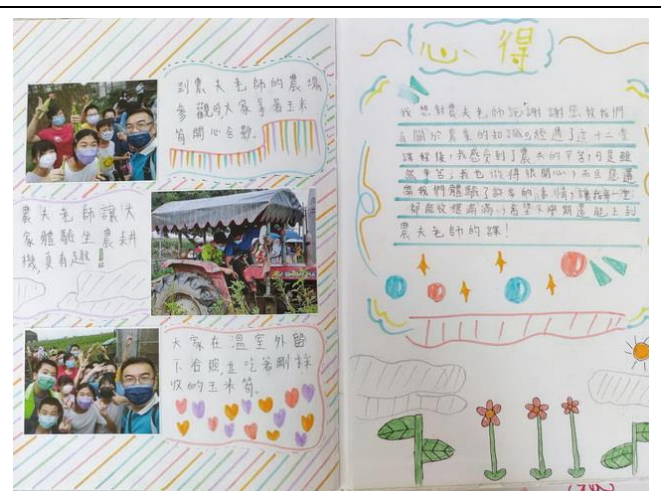 到農夫老師的農場
參觀時大家拿著玉米
筍開心合影。
農夫老師讓大
家體驗坐農耕
機,真有趣!
大家在溫室外留
下合照並吃著剛採
收的玉米筍。
心得
我想對農夫老師說:謝謝您教我們
有關於農業的知識。經過了這十二堂
課程後,我感受到了農夫的辛苦,可是雖
然辛苦,我也做得很開心,而且您還
讓我們體驗了許多的事情,讓我每一堂
都能收穫滿滿,希望下學期還能上到
農夫老師的課!